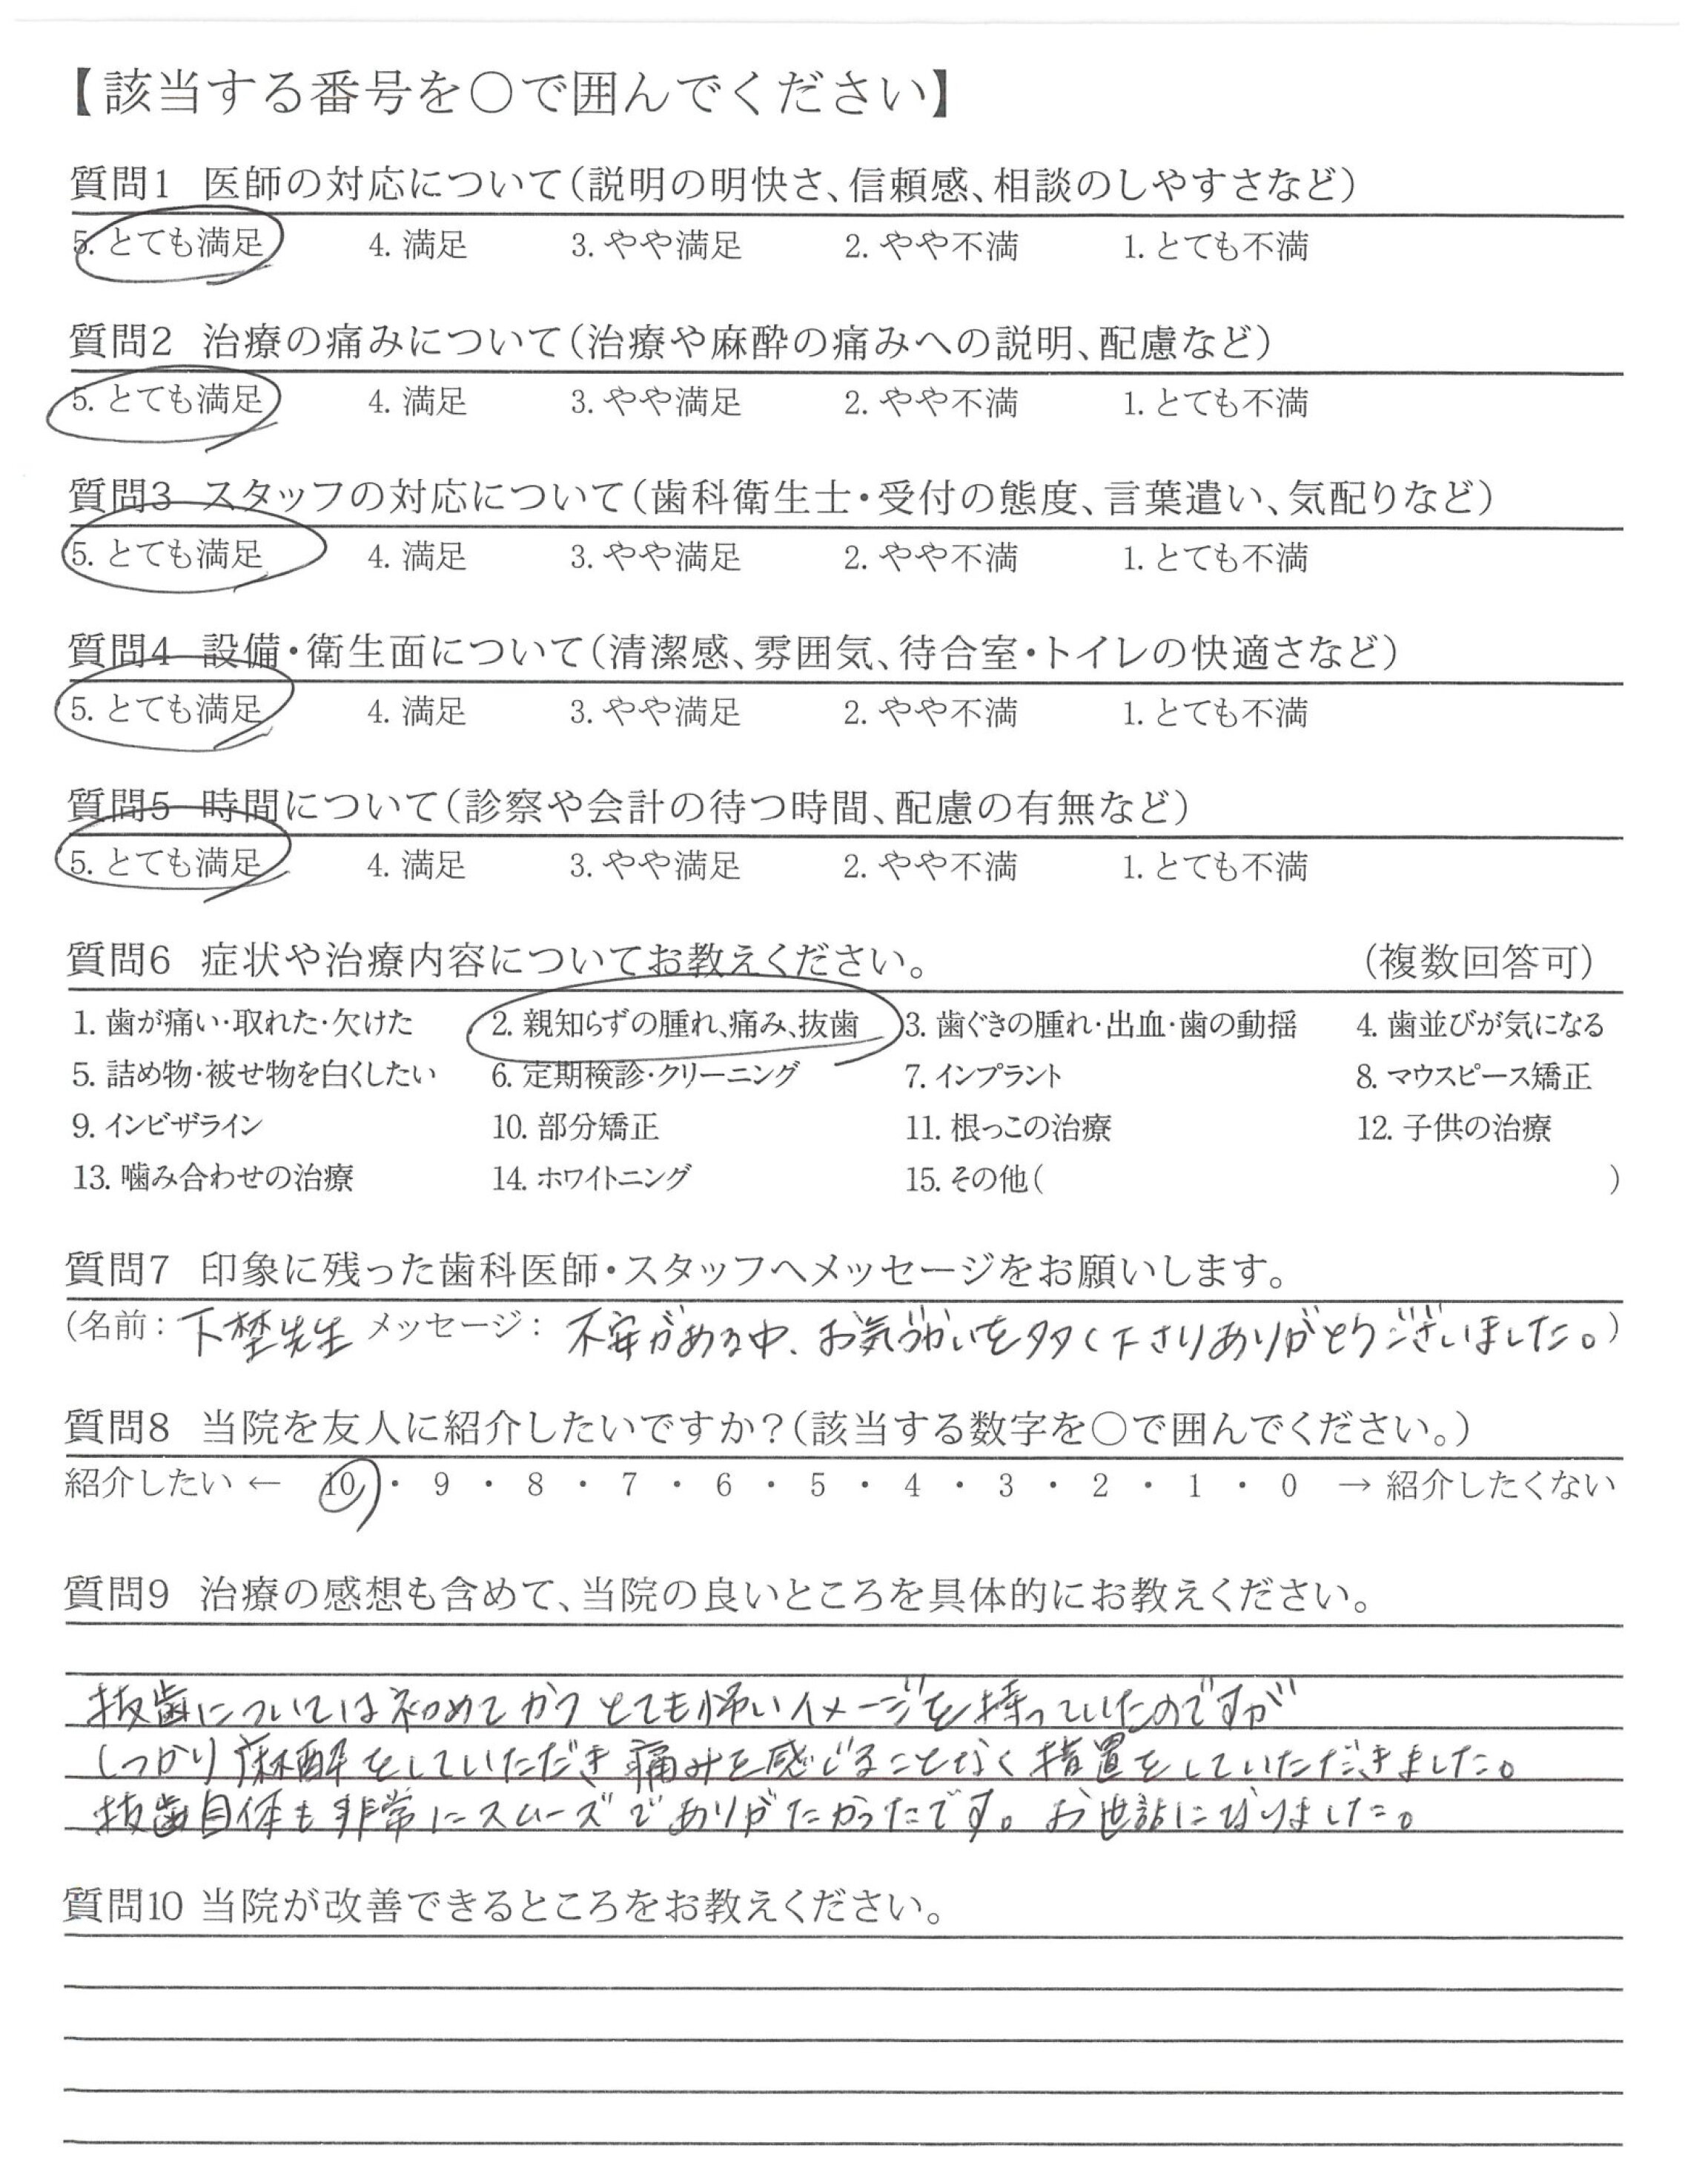 【該当する番号を○で囲んでください】
質問1 医師の対応について（説明の明快さ、信頼感、相談のしやすさなど）
5. とても満足 4. 満足 3. やや満足 2. やや不満 1. とても不満
質問2 治療の痛みについて（治療や麻酔の痛みへの説明、配慮など）
5. とても満足 4. 満足 3. やや満足 2. やや不満 1. とても不満
質問3 スタッフの対応について（歯科衛生士・受付の態度、言葉遣い、気配りなど）
5. とても満足 4. 満足 3. やや満足 2. やや不満 1. とても不満
質問4 設備・衛生面について（清潔感、雰囲気、待合室・トイレの快適さなど）
5. とても満足 4. 満足 3. やや満足 2. やや不満 1. とても不満
質問5 時間について（診察や会計の待つ時間、配慮の有無など）
5. とても満足 4. 満足 3. やや満足 2. やや不満 1. とても不満
質問6 症状や治療内容についてお教えください。 （複数回答可）
1. 歯が痛い・取れた・欠けた 2. 親知らずの腫れ、痛み、抜歯 3. 歯ぐきの腫れ・出血・歯の動揺 4. 歯並びが気になる
5. 詰め物・被せ物を白くしたい 6. 定期検診・クリーニング 7. インプラント 8. マウスピース矯正
9. インビザライン 10. 部分矯正 11. 根っこの治療 12. 子供の治療
13. 噛み合わせの治療 14. ホワイトニング 15. その他（ ）
質問7 印象に残った歯科医師・スタッフへメッセージをお願いします。
（名前：下埜先生 メッセージ：不安がある中、お気づかいを多く下さりありがとうございました。）
質問8 当院を友人に紹介したいですか？（該当する数字を○で囲んでください。）
紹介したい ← 10 ・ 9 ・ 8 ・ 7 ・ 6 ・ 5 ・ 4 ・ 3 ・ 2 ・ 1 ・ 0 → 紹介したくない
質問9 治療の感想も含めて、当院の良いところを具体的にお教えください。
抜歯については初めてかつとても怖いイメージを持っていたのですが
しっかり麻酔をしていただき痛みを感じることなく措置をしていただきました。
抜歯自体も非常にスムーズでありがたかったです。お世話になりました。
質問10 当院が改善できるところをお教えください。